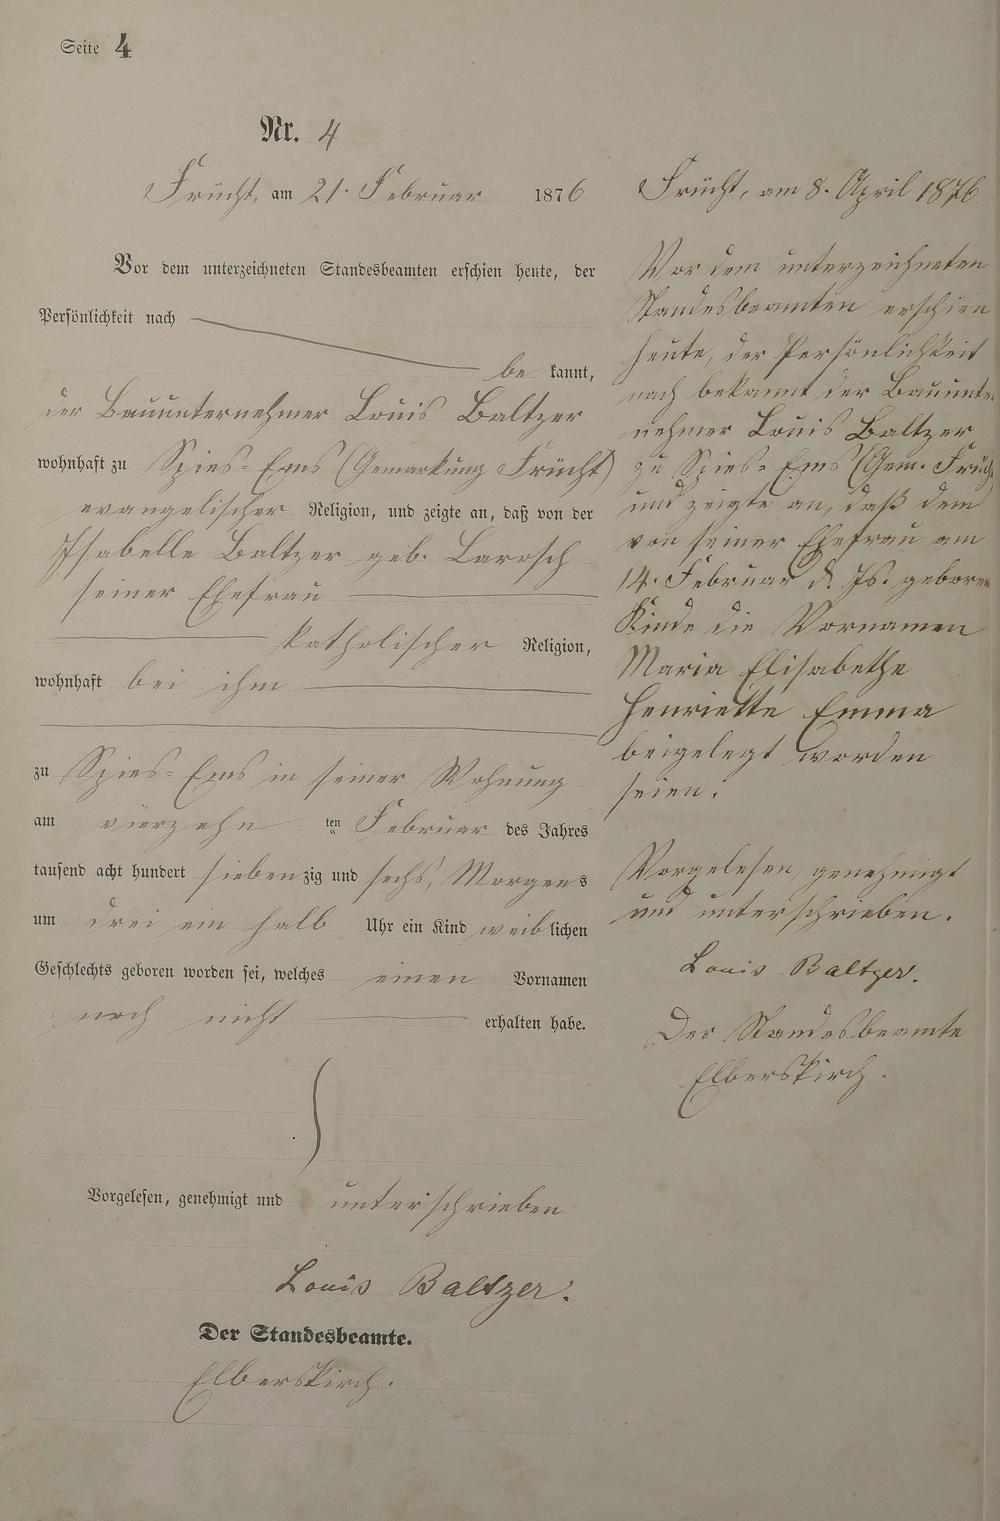 Seite 4
Nr. 4
Frücht, am 21. Februar 1876
Vor dem unterzeichneten Standesbeamten erschien heute, der
Persönlichkeit nach
be kannt,
der Bauunternehmer Louis Baltzer
wohnhaft zu Spies-Ems (Gemarkung Frücht)
evangelischer Religion, und zeigte an, daß von der
Isabelle Baltzer geb. Larosch
seiner Ehefrau
katholischer Religion,
wohnhaft bei ihm
zu Spies-Ems in seiner Wohnung
am vierzehn ten Februar des Jahres
tausend acht hundert siebenzig und sechs, Morgens
um drei ein halb Uhr ein Kind weiblichen
Geschlechts geboren worden sei, welches einen Vornamen
noch nicht erhalten habe.
Vorgelesen, genehmigt und unterschrieben
Louis Baltzer.
Der Standesbeamte.
Elberskirch.
Frücht, am 8. April 1876
Vor dem unterzeichneten
Standesbeamten erschien
heute, der Persönlichkeit
nach bekannt der Bauunter
nehmer Louis Baltzer
zu Spies-Ems (Gem. Frücht
und zeigte an, daß dem
von seiner Ehefrau am
14. Februar d. Js. geboren
Kinde die Vornamen
Maria Elisabethe
Henriette Emma
beigelegt worden
seien.
Vorgelesen, genehmigt
und unterschrieben.
Louis Baltzer.
Der Standesbeamte
Elberskirch.